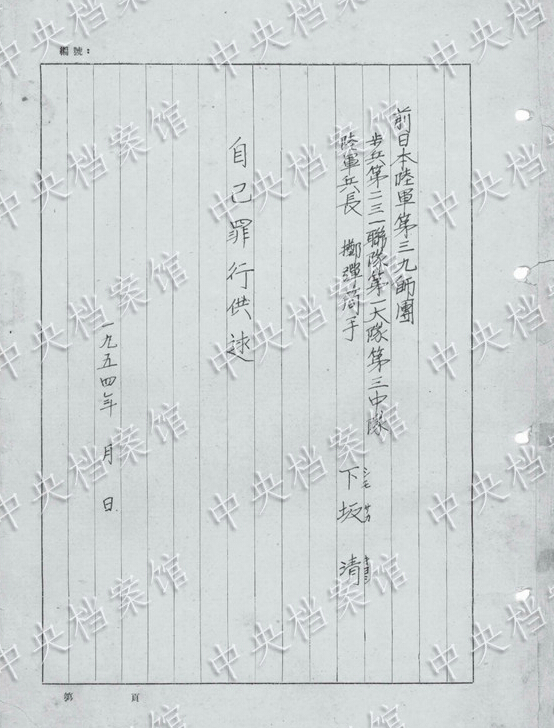 編號：
前日本陸軍第三九師團
步兵第二三一聯隊第一大隊第三中隊
陸軍兵長 擲彈筒手 下坂 清
シモ サカ キヨシ
自己罪行供述
一九五四年 月 日
第 頁
中央档案馆